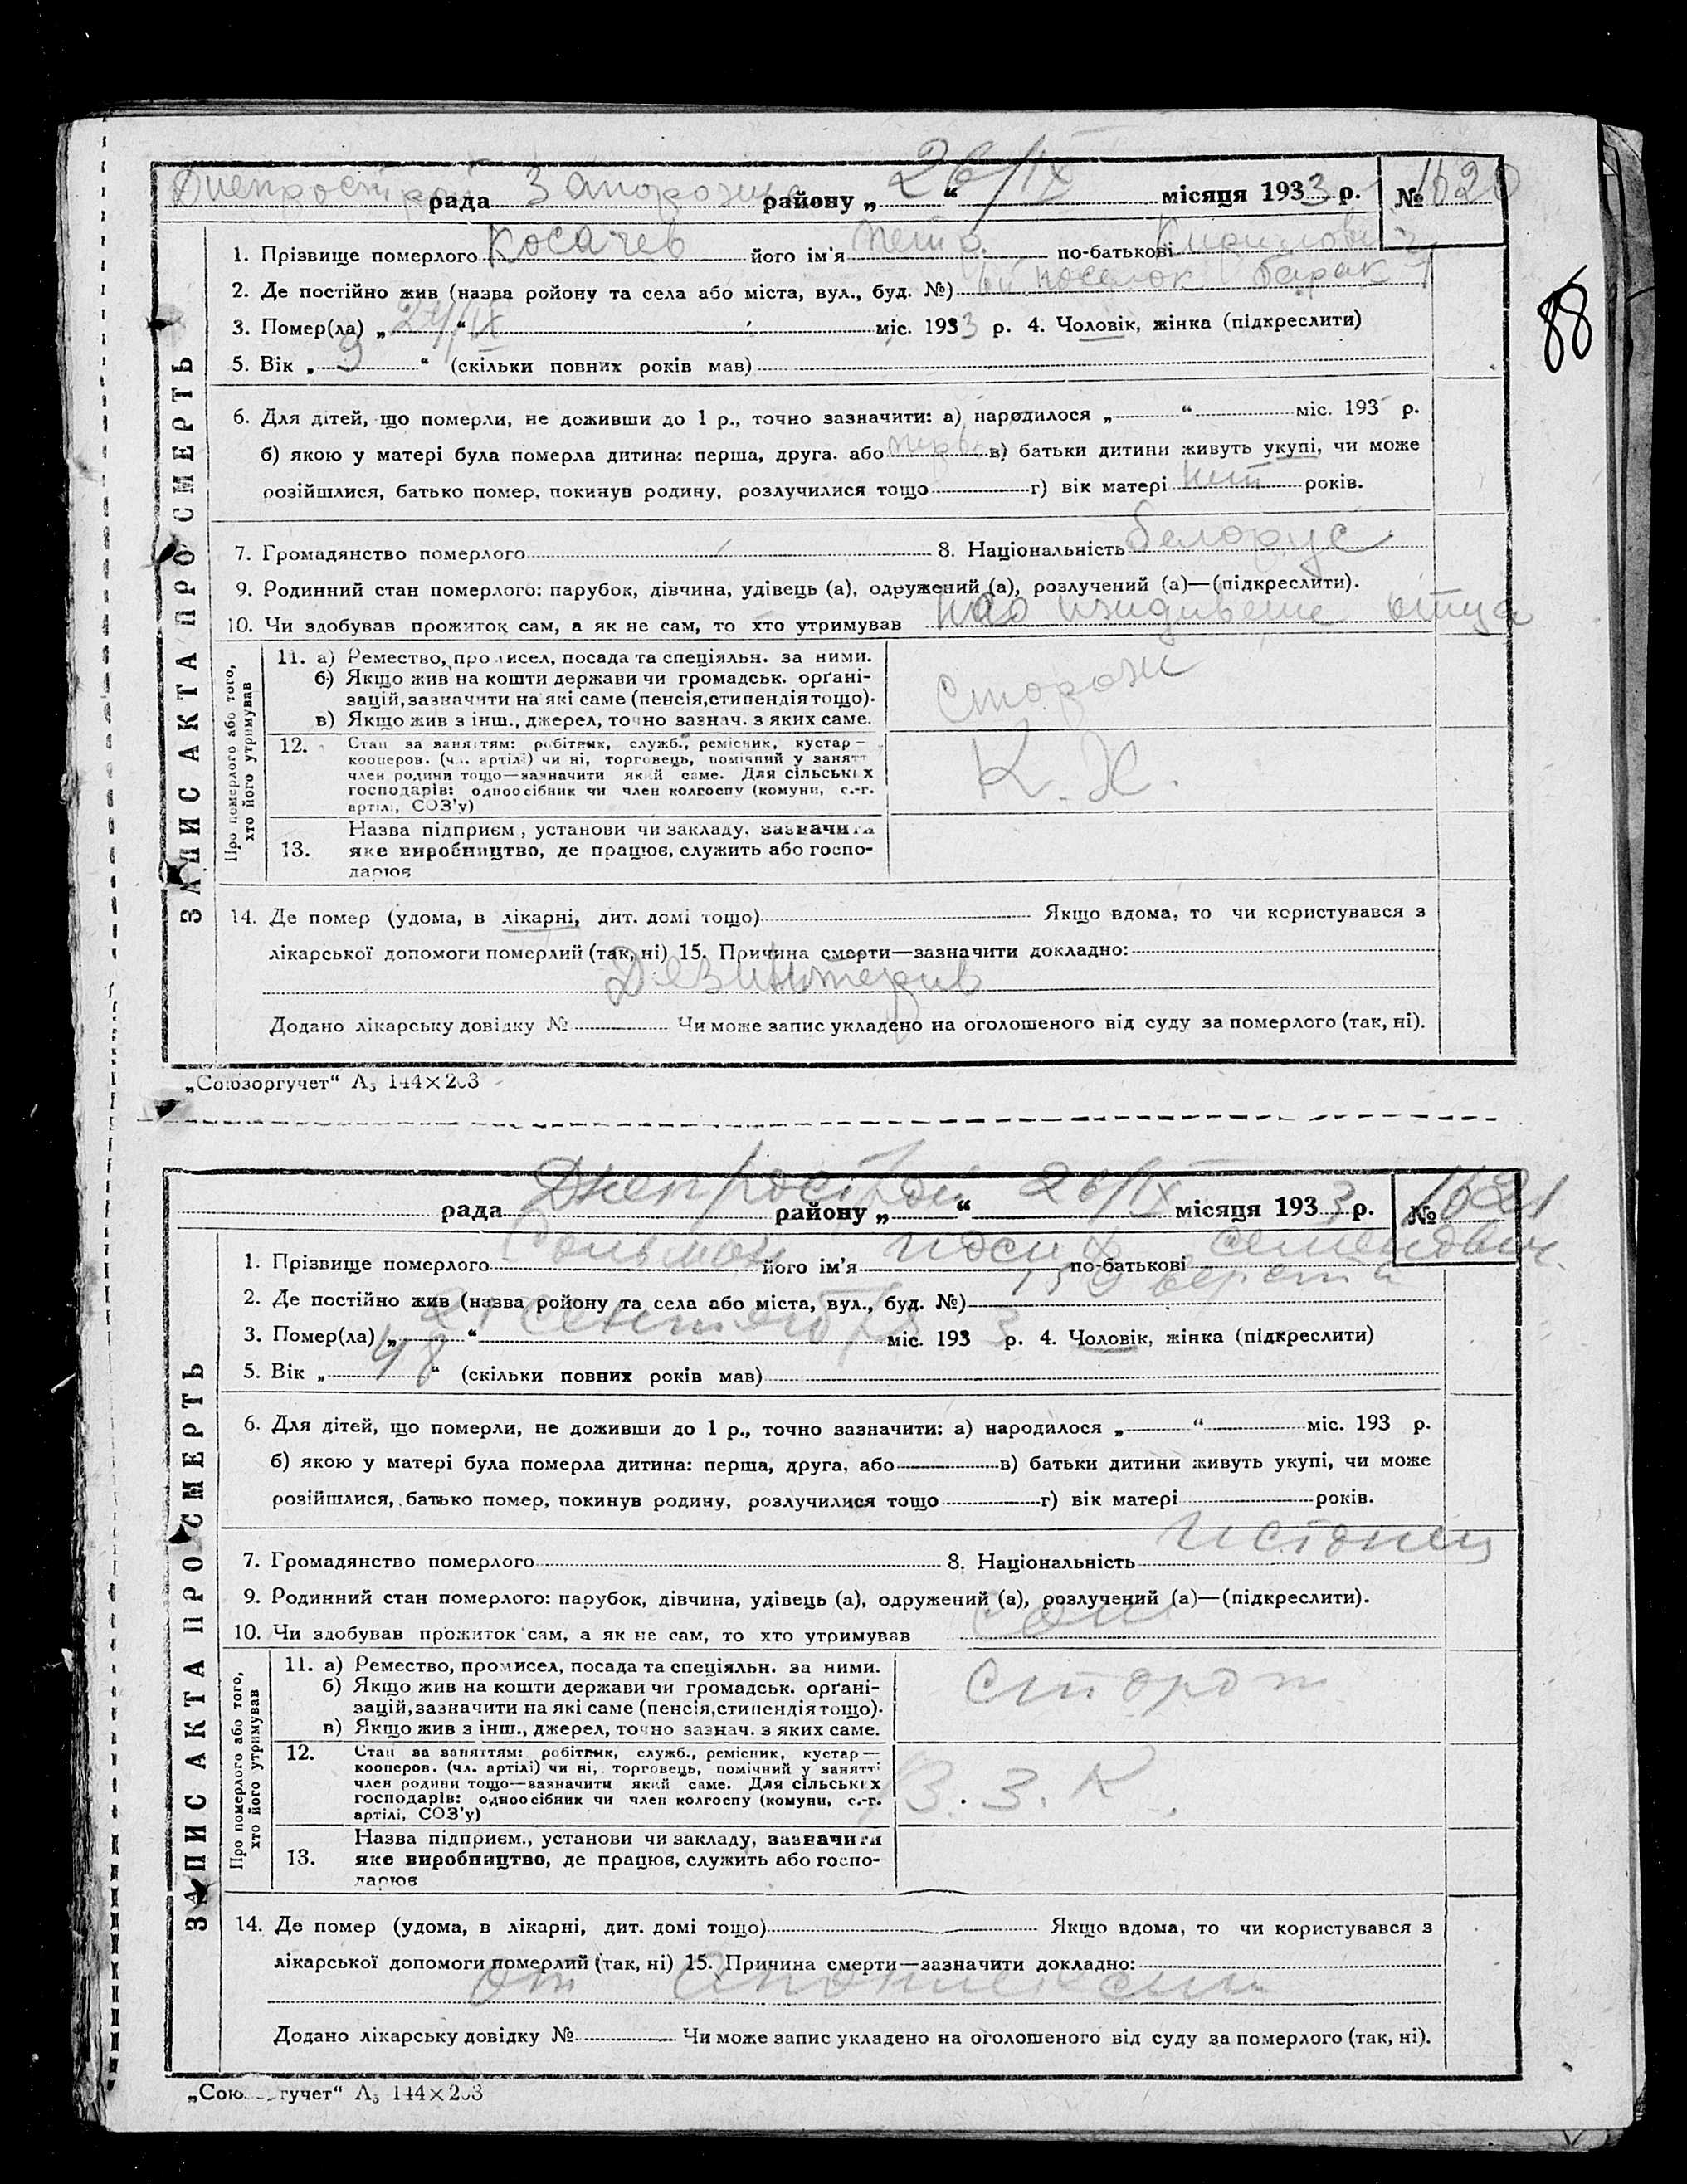 Днепрострой рада Запорожца району „ 26/IX “ місяця 1933 р. № 1620
1. Прізвище померлого Косачев його ім'я Петр. по-батькові Кирилович
2. Де постійно жив (назва ройону та села або міста, вул., буд. №) поселок барак
3. Помер(ла) „ 24/IX “ міс. 1933 р. 4. Чоловік, жінка (підкреслити)
5. Вік „ 9 “ (скільки повних років мав)
6. Для дітей, що померли, не доживши до 1 р., точно зазначити: а) народилося „ “ міс. 193 р.
б) якою у матері була померла дитина: перша, друга. або в) батьки дитини живуть укупі, чи може
розійшлися, батько помер, покинув родину, розлучилися тощо г) вік матері нет років.
7. Громадянство померлого 8. Національність белорус
9. Родинний стан померлого: парубок, дівчина, удівець (а), одружений (а), розлучений (а)—(підкреслити).
10. Чи здобував прожиток сам, а як не сам, то хто утримував отца
ЗАПИС АКТА ПРО СМЕРТЬ
Про померлого або того, хто його утримував
11. а) Ремество, промисел, посада та спеціяльн. за ними.
б) Якщо жив на кошти держави чи громадськ. орґані-
зацій, зазначити на які саме (пенсія, стипендія тощо).
в) Якщо жив з інш., джерел, точно зазнач. з яких саме.
Сторож
12. Стан за заняттям: робітник, служб., ремісник, кустар—
кооперов. (чл. артілі) чи ні, торговець, помічний у занятт
член родини тощо—зазначити який саме. Для сільських
господарів: одноосібник чи член колгоспу (комуни, с.-г.
артілі, СОЗ'у)
К. Х.
Назва підприєм., установи чи закладу, зазначити
13. яке виробництво, де працює, служить або госпо-
дарює
14. Де помер (удома, в лікарні, дит. домі тощо) Якщо вдома, то чи користувався з
лікарської допомоги померлий (так, ні) 15. Причина смерти—зазначити докладно:
Додано лікарську довідку № Чи може запис укладено на оголошеного від суду за померлого (так, ні).
„Союзоргучет“ А₅ 144×203
88
рада Днепрострой району „ 26/IX “ місяця 1933 р. № 1621
1. Прізвище померлого його ім'я Иосиф по-батькові Семенович
2. Де постійно жив (назва ройону та села або міста, вул., буд. №)
3. Помер(ла) „ 21 “ сентября міс. 1933 р. 4. Чоловік, жінка (підкреслити)
5. Вік „ 48 “ (скільки повних років мав)
6. Для дітей, що померли, не доживши до 1 р., точно зазначити: а) народилося „ “ міс. 193 р.
б) якою у матері була померла дитина: перша, друга, або в) батьки дитини живуть укупі, чи може
розійшлися, батько помер, покинув родину, розлучилися тощо г) вік матері років.
7. Громадянство померлого 8. Національність
9. Родинний стан померлого: парубок, дівчина, удівець (а), одружений (а), розлучений (а)—(підкреслити).
10. Чи здобував прожиток сам, а як не сам, то хто утримував сам
ЗАПИС АКТА ПРО СМЕРТЬ
Про померлого або того, хто його утримував
11. а) Ремество, промисел, посада та спеціяльн. за ними.
б) Якщо жив на кошти держави чи громадськ. орґані-
зацій, зазначити на які саме (пенсія, стипендія тощо).
в) Якщо жив з інш., джерел, точно зазнач. з яких саме.
Сторож
12. Стан за заняттям: робітник, служб., ремісник, кустар—
кооперов. (чл. артілі) чи ні, торговець, помічний у занятті
член родини тощо—зазначити який саме. Для сільських
господарів: одноосібник чи член колгоспу (комуни, с.-г.
артілі, СОЗ'у)
З. К.
Назва підприєм., установи чи закладу, зазначити
13. яке виробництво, де працює, служить або госпо-
дарює
14. Де помер (удома, в лікарні, дит. домі тощо) Якщо вдома, то чи користувався з
лікарської допомоги померлий (так, ні) 15. Причина смерти—зазначити докладно:
от
Додано лікарську довідку № Чи може запис укладено на оголошеного від суду за померлого (так, ні).
„Союзоргучет“ А₅ 144×203